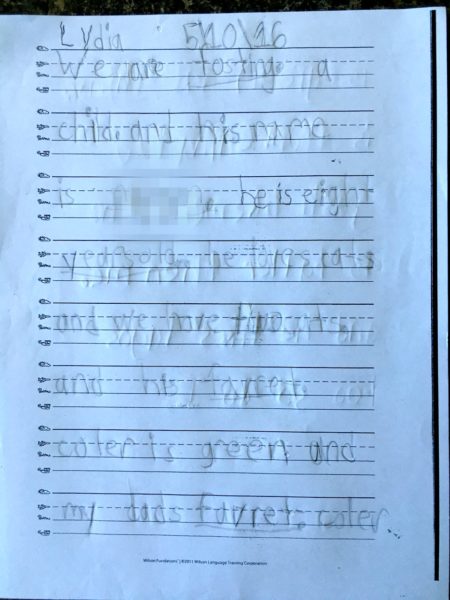 Lydia 5\10\16
We are fosting a
child. and his name
is he is eight
years old. he likes cats
and we have two cats.
and his
coler is green and
my dads favret coler
Wilson Fundations® | ©2011 Wilson Language Training Corporation